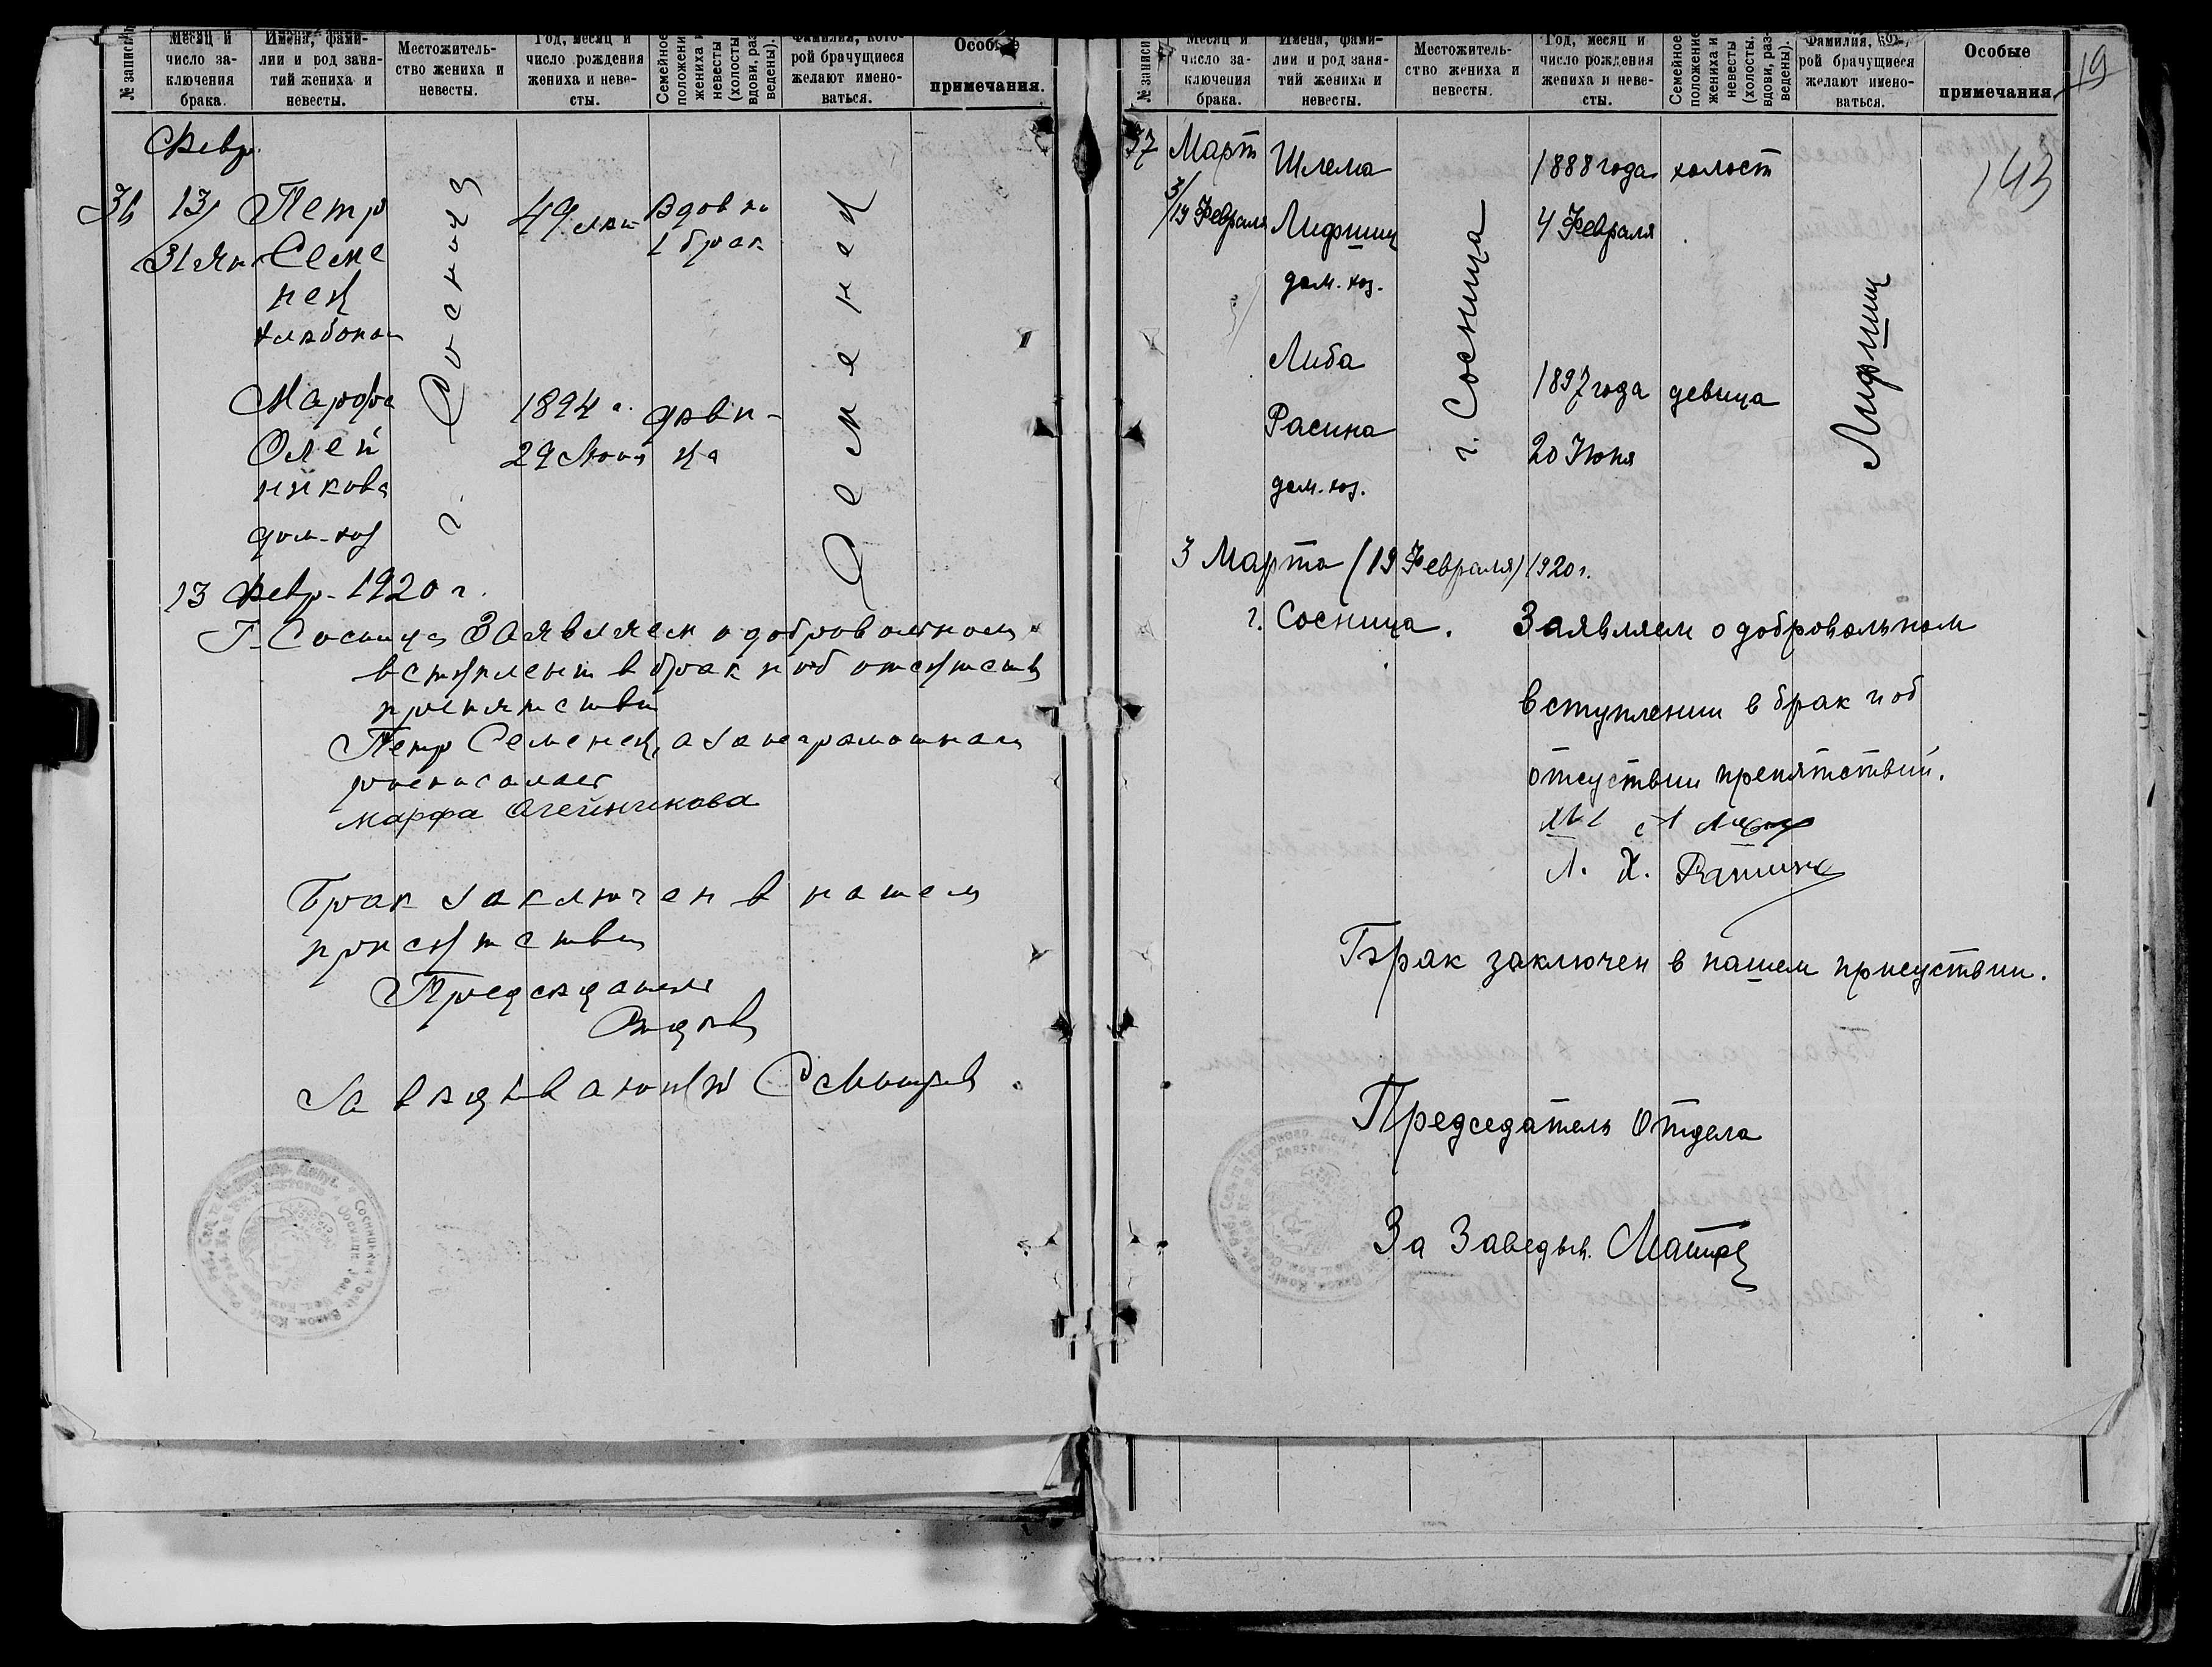 № записи
Месяц и
число за-
ключения
брака.
Имена, фами-
лии и род заня-
тий жениха и
невесты.
Местожитель-
ство жениха и
невесты.
Год, месяц и
число рождения
жениха и неве-
сты.
Семейное
положение
жениха и
невесты
(холосты,
вдовы, раз-
ведены).
Фамилия, кото-
рой брачущиеся
желают имено-
ваться.
Особые
примечания.
Февр.
36
13/
31 Ян
Петр
Семе
нец
хлебопаш
г. Сосница
49 лет
Вдовец
1 брак
Семенец
Марфа
Олей
никова
дом-хоз
1894 г.
29 Июня
деви-
ца
13 Февр. 1920 г.
Г. Сосница Заявляем о добровольном
вступлении в брак и об отсутствии
препятствий
Петр Семенец, а за неграмотного
расписалась
марфа Олейникова
Брак заключен в нашем
присутствии
Председатель
Заведывающий
№ записи
Месяц и
число за-
ключения
брака.
Имена, фами-
лии и род заня-
тий жениха и
невесты.
Местожитель-
ство жениха и
невесты.
Год, месяц и
число рождения
жениха и неве-
сты.
Семейное
положение
жениха и
невесты
(холосты,
вдовы, раз-
ведены).
Фамилия, кото-
рой брачущиеся
желают имено-
ваться.
Особые
примечания
19
143
37
Март
3/
19 Февраля
Шлема
Лифшиц
дом. хоз.
г. Сосница
1888 года
4 Февраля
холост
Лифшиц
Либа
Расина
дом. хоз.
1897 года
20 Июня
девица
3 Марта (19 Февраля) 1920 г.
г. Сосница. Заявляем о добровольном
вступлении в брак и об
отсуствии препятствий.
Л. Х. Рашина
Брак заключен в нашем присуствии.
Председатель Отдела
За Заведыв.